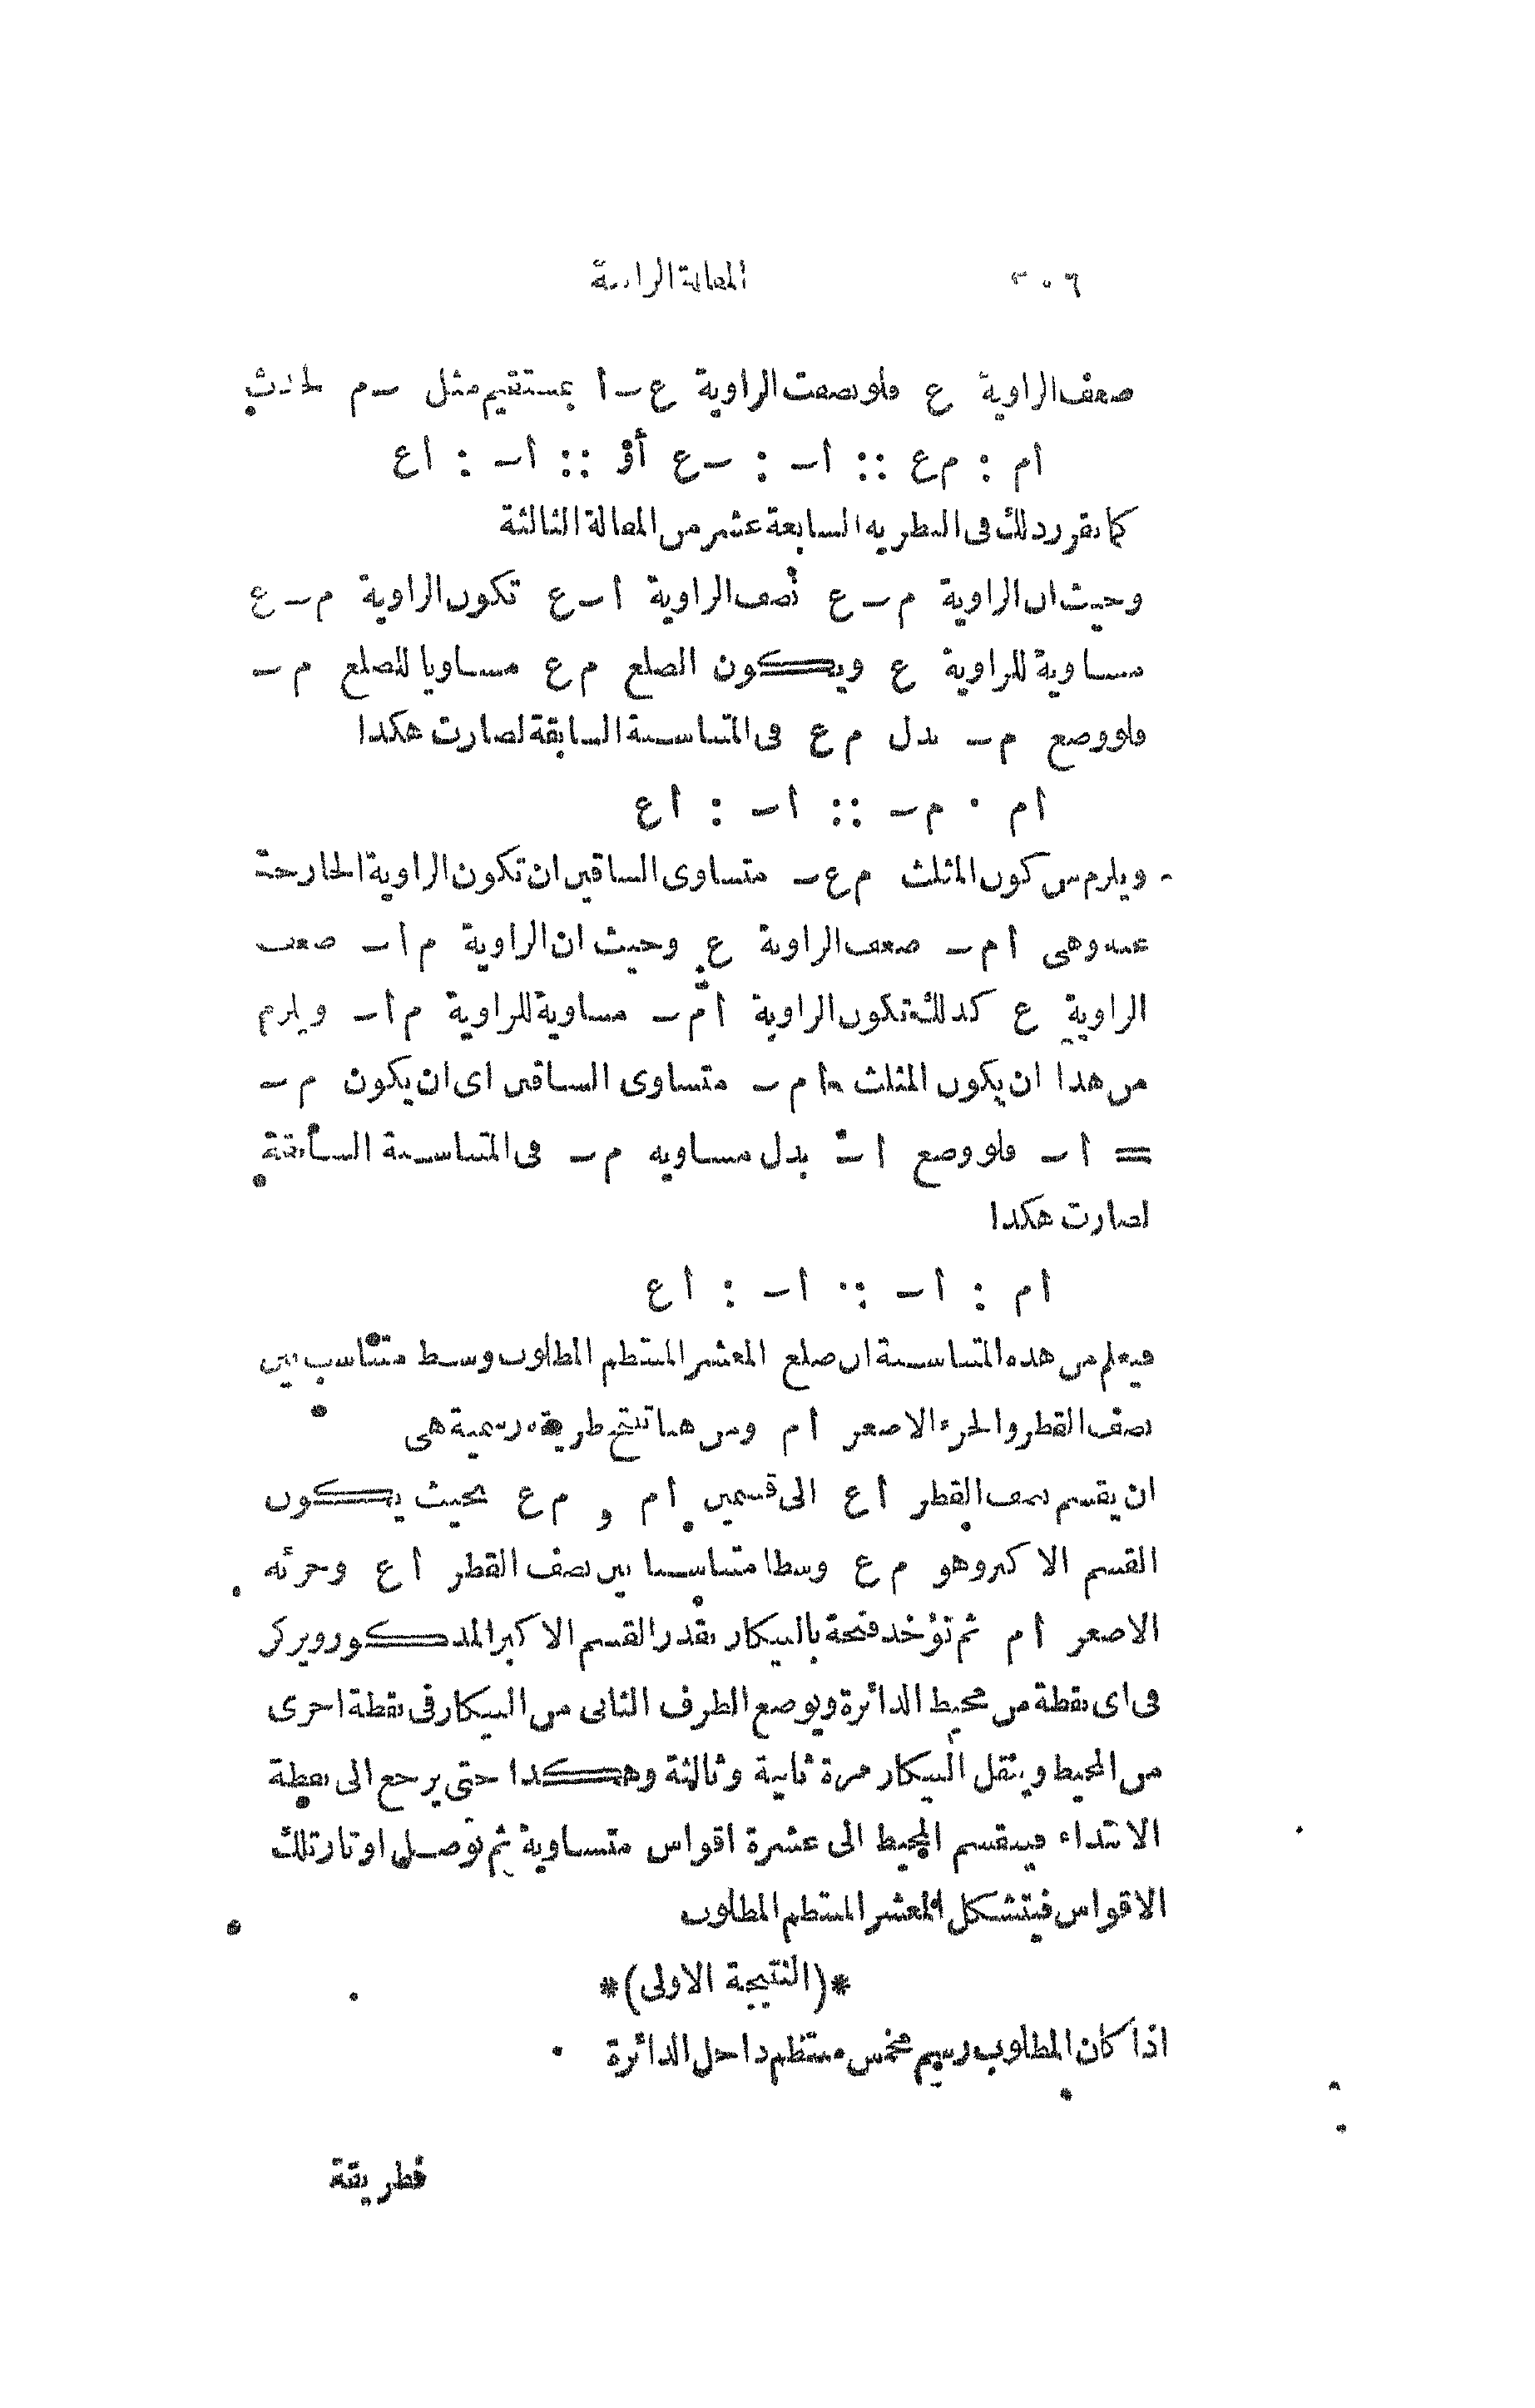 ٢٠٦ المقالة الرابعة
ضعف الزاوية ع فلو نصفت الزاوية ع ب ا بمستقيم مثل ب م لحدث
ام : م ع :: اب : ب ع أو :: اب : اع
كما تقرر ذلك فى النظرية السابعة عشر من المقالة الثالثة
وحيث ان الزاوية م ب ع نصف الزاوية ا ب ع تكون الزاوية م ب ع
مساوية للزاوية ع ويكون الضلع م ع مساويا للضلع م ب
فلو وضع م ب بدل م ع فى المتناسبة السابقة لصارت هكذا
ام : م ب :: اب : اع
ويلزم من كون المثلث م ع ب متساوى الساقين ان تكون الزاوية الخارجة
عنه وهى ا م ب ضعف الزاوية ع وحيث ان الزاوية م ا ب ضعف
الزاوية ع كذلك تكون الزاوية ا م ب مساوية للزاوية م ا ب ويلزم
من هذا ان يكون المثلث ا م ب متساوى الساقين اى ان يكون م ب
= اب فلو وضع اب بدل مساويه م ب فى المتناسبة السابقة
لصارت هكذا
ام : اب :: اب : اع
فيعلم من هذه المتناسبة ان ضلع المعشر المنتظم المطلوب وسط متناسب بين
نصف القطر والجزء الاصغر ام ومن هنا تنتج طريقة رسمية هى
ان يقسم نصف القطر اع الى قسمين ام و م ع بحيث يكون
القسم الاكبر وهو م ع وسطا متناسبا بين نصف القطر اع وجزئه
الاصغر ام ثم تؤخذ فتحة بالبيكار بقدر القسم الاكبر المذكور ويركز
فى اى نقطة من محيط الدائرة ويوضع الطرف الثانى من البيكار فى نقطة اخرى
من المحيط وينقل البيكار مرة ثانية وثالثة وهكذا حتى يرجع الى نقطة
الابتداء فينقسم المحيط الى عشرة اقواس متساوية ثم توصل اوتار تلك
الاقواس فيتشكل المعشر المنتظم المطلوب
*(النتيجة الاولى)*
اذا كان المطلوب رسم مخمس منتظم داخل الدائرة
فطريقة